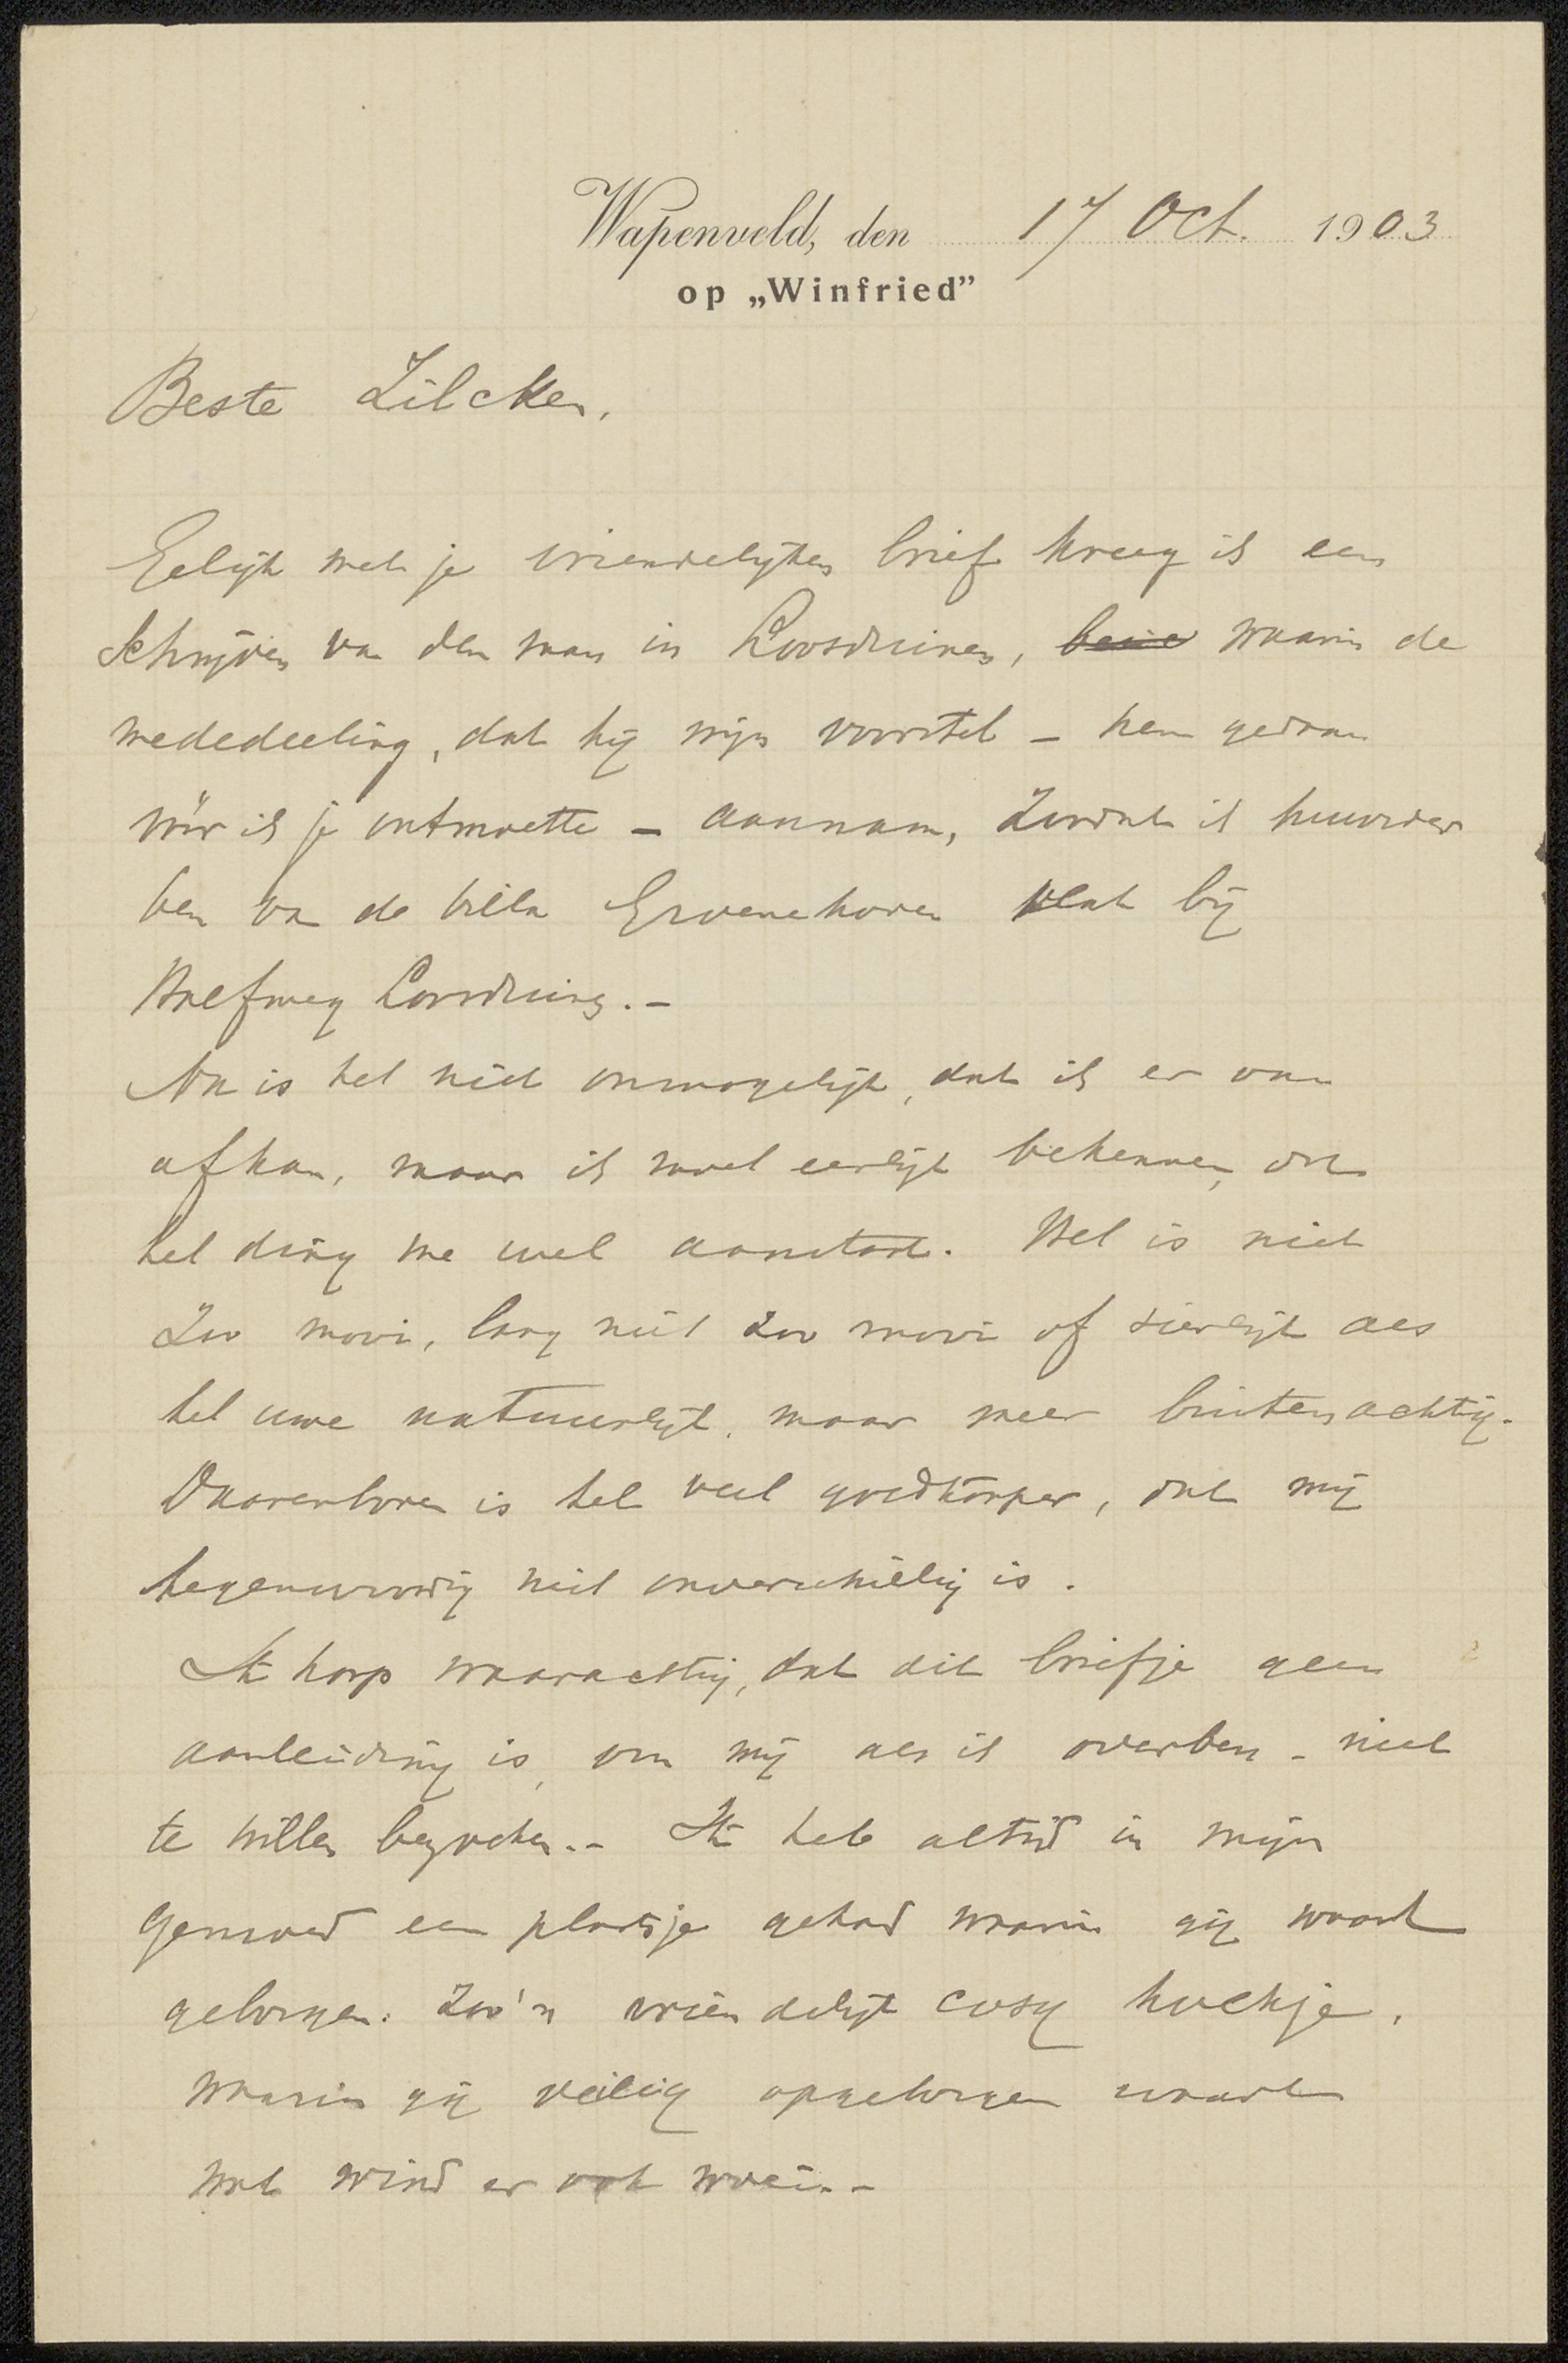 Wapenveld, den 17 Oct. 1903
op „Winfried”
Beste Zilcken,
Gelijk met je vriendelijken brief kreeg ik een
schrijven van den man in Loosduinen, waarin de
mededeeling, dat hij mijn voorstel – hem gedaan
vóór ik je ontmoette – aannam, zoodat ik huurder
ben van de villa Groenehoven vlak bij
Loosduinen. –
Nu is het niet onmogelijk, dat ik er van
afkan, maar ik moet eerlijk bekennen, dat
het ding me wel aanstaat. Het is niet
zoo mooi, lang niet zoo mooi of sierlijk als
het uwe natuurlijk, maar meer buitenachtig.
Daarenboven is het veel goedkooper, dat mij
tegenwoordig niet onverschillig is.
Ik hoop waarachtig, dat dit briefje geen
aanleiding is, om mij als ik overben – niet
te willen bezoeken. – Ik heb altijd in mijn
gemoed een plaatsje gehad waarin gij waart
geborgen: zoo'n vriendelijk cosy hoekje,
waarin gij veilig opgeborgen waart
wat wind er ook woei. –